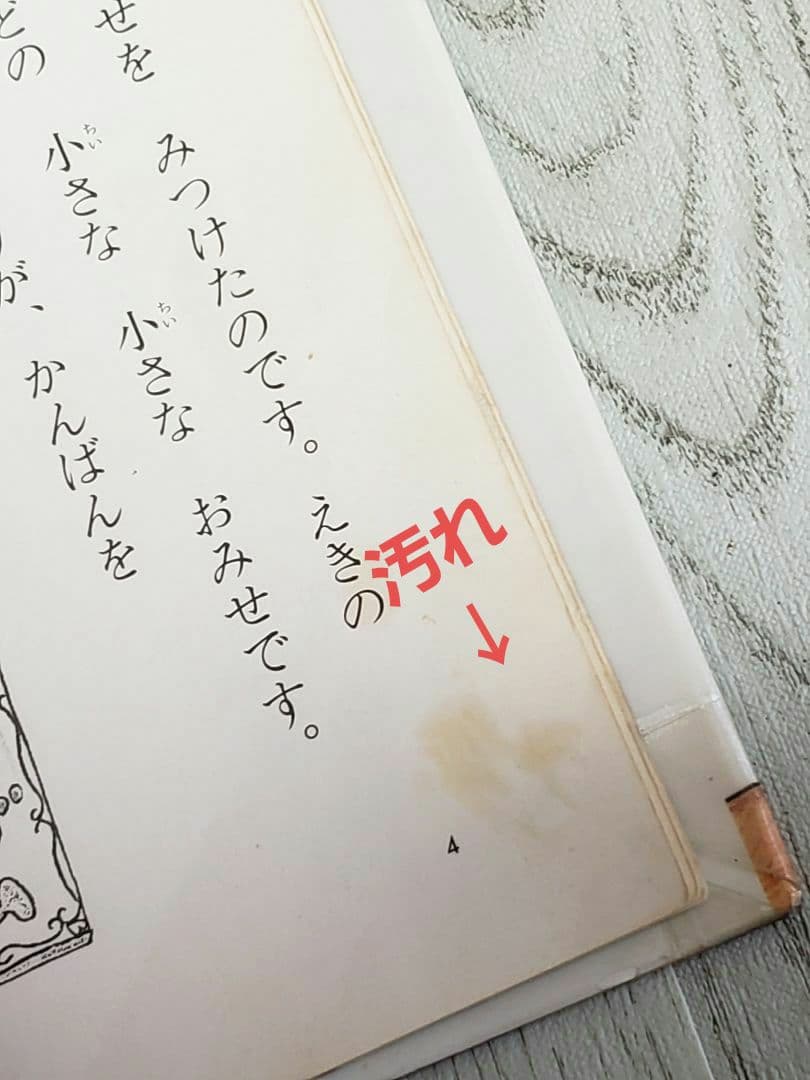 せを みつけたのです。 えきの
どの 小さな 小さな おみせです。
が、 かんばんを
ちい
ちい
汚れ
↓
4